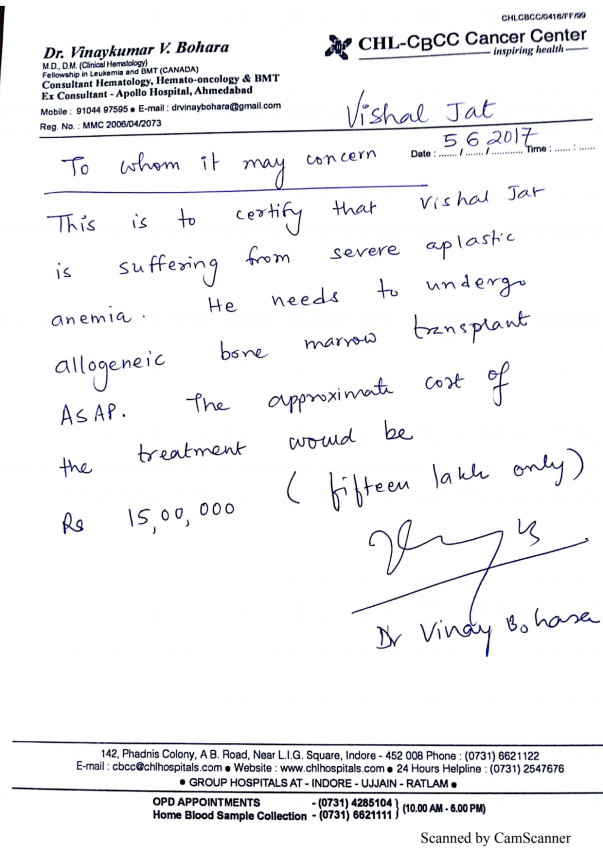 CHLCBCC/0416/FF/99
Dr. Vinaykumar V. Bohara
M.D., D.M. (Clinical Hematology)
Fellowship in Leukemia and BMT (CANADA)
Consultant Hematology, Hemato-oncology & BMT
Ex Consultant - Apollo Hospital, Ahmedabad
Mobile : 91044 97595 ● E-mail : drvinaybohara@gmail.com
Reg. No. : MMC 2006/04/2073
CHL-CBCC Cancer Center
inspiring health
Vishal Jat
Date : 5/6/2017 Time : ...... : ......
To whom it may concern
This is to certify that Vishal Jat
is suffering from severe aplastic
anemia. He needs to undergo
allogeneic bone marrow transplant
ASAP. The approximate cost of
the treatment would be
Rs 15,00,000 (fifteen lakh only)
Dr Vinay Bohara
142, Phadnis Colony, A.B. Road, Near L.I.G. Square, Indore - 452 008 Phone : (0731) 6621122
E-mail : cbcc@chlhospitals.com ● Website : www.chlhospitals.com ● 24 Hours Helpline : (0731) 2547676
● GROUP HOSPITALS AT - INDORE - UJJAIN - RATLAM ●
OPD APPOINTMENTS - (0731) 4285104 } (10.00 AM - 6.00 PM)
Home Blood Sample Collection - (0731) 6621111 }
Scanned by CamScanner